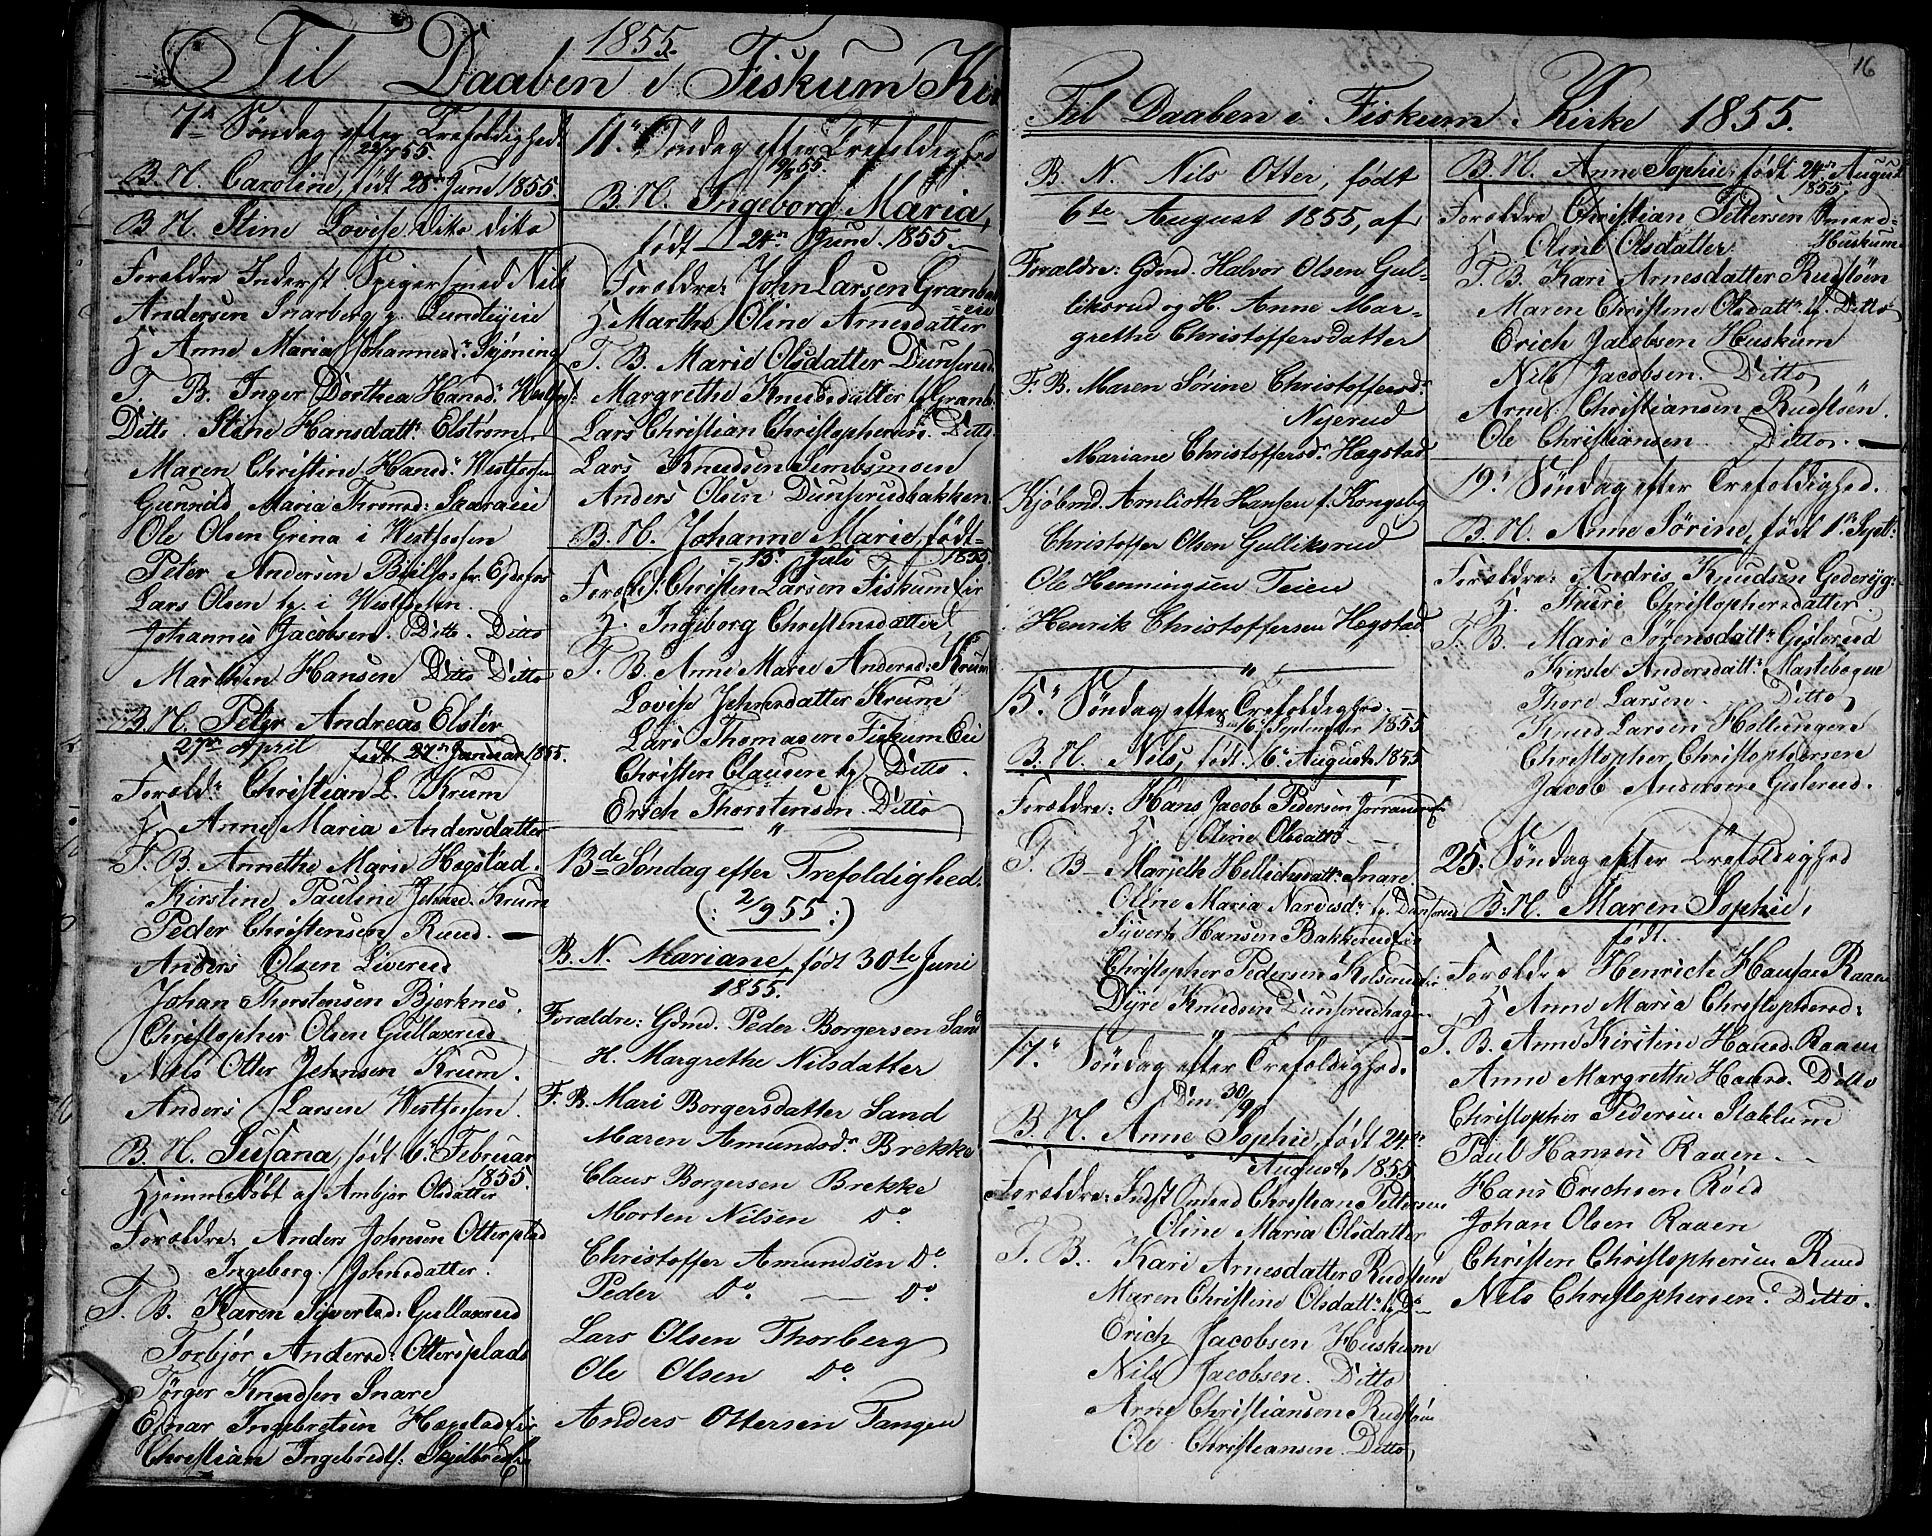 1855.
Til Daaben i Fiskum Kir
7de Søndag efter Trefoldighed.
22/7 55.
B. N. Caroline, født 28de Juni 1855.
B. N. Stine Lovise, dito dito
Forældre Inderst Spigersmed Nils
Andersen Snarberg
H. Anne Maria Johannesd:
F. B. Inger Dorthea Hansd: Westfos:
Ditto. Stine Hansdatt: Elstrøm
Maren Christine Hansd: Westfossen
Gunnild Maria Thomasd:
Ole Olsen Grina i Westfossen
Peter Andersen
Lars Olsen i Westfossen
Johannes Jacobsen. Ditto. Ditto
Marthin Hansen Ditto Ditto
B. N. Peter Andreas Elster
27de April født 27de Januar 1855.
Foræld: Christian L. Krum
H. Anne Maria Andersdatter
F. B. Annethe Marie Hogstad.
Kirstine Pauline Johnsd. Krum
Peder Christensen Ruud.
Anders Olsen Liverud
Johan Thorstensen Bjerknes.
Christopher Olsen Gullaxrud
Nils Otter Johnsen Krum.
Anders Larsen Westfossen.
B. N. Susana, født 6te Februar
1855.
Hjemmedøbt af Ambjør Olsdatter
Forældre: Anders Johnsen Otterplad
Ingeborg Johnsdatter.
F. B. Karen Syvertsd: Gullaxrud
Torbjør Andersd: Ottersplads
Tørger Knudsen Snare
Ejnar Ingebretsen Hogstadeie
Christian Ingebredts:
11te Søndag efter Trefoldighed
19/8 55.
B. N. Ingeborg Maria,
født 24de Juni. 1855.
Forældre: John Larsen Granbu
eie
H. Marthe Oline Arnesdatter
F. B. Marie Olsdatter Dunserud
Margrethe Knudsdatter Granb:
Lars Christian Christophersen. Ditto.
Lars Knudsen Sembsmoen
Anders Olsen Dunserudbakken.
B. N. Johanne Marie, født
15de Juli 1855
Foræld: Christen Larsen Fiskumeie
H. Ingeborg Christensdatter
F. B. Anne Marie Andersd: Krum
Lovise Johnsdatter Krum
Lars Thomasen Fiskum Eie
Christen Clausen Ditto.
Erich Thorstensen. Ditto
13de Søndag efter Trefoldighed.
(: 2/9 55 :)
B. N. Mariane født 30te Juni
1855.
Forældre: Gdmd. Peder Borgersen Sand
H. Margrethe Nilsdatter
F. B. Mari Borgersdatter Sand
Maren Amundsdr Brekke
Claus Borgersen Brekke
Morten Nilsen Do.
Christoffer Amundsen Do.
Peder Do. — Do.
Lars Olsen Thorberg
Ole Olsen Do.
Anders Ottersen Tangen
16
Til Daaben i Fiskum Kirke 1855.
B. N. Nils Otter, født
6te August 1855, af
Forældre: Gdmd. Halvor Olsen Gul-
liksrud og H. Anne Mar-
grethe Christoffersdatter
F. B. Maren Sørine Christoffersdr
Nyerud
Mariane Christoffersdr Hogstad
Kjøbmd. Arnlioth Hansen f. Kongsbg
Christoffer Olsen Gulliksrud
Ole Henningsen Teien
Henrik Christoffersen Hogstad
15de Søndag efter Trefoldighed.
Den 16de September 1855
B. N. Nils, født. 6te August 1855
Forældre: Hans Jacob Pedersen
H. Oline Olsdatter
F. B. Marjeth Hellichsdatt: Snare
Oline Maria Dunserud
Syvert Hansen Bakkerudeie
Christopher Pedersen Kolsrudeie
Dyre Knudsen Dunserudhagen
17de Søndag efter Trefoldighed.
Den 30/9
B. N. Anne Sophie, født 24de
August 1855
Forældre: Indst Christian Pettersen
Oline Maria Olsdatter
F. B. Kari Arnesdatter Rudstøen
Maren Christine Olsdatt: Do
Erich Jacobsen Huskum
Nils Jacobsen. Ditto
Arne Christiansen Rudstøen
Ole Christiansen. Ditto,
B. N. Anne Sophie, født 24de August
1855.
Forældre Christian Pettersen Smed-
Huskum
H. Oline Olsdatter
F. B. Kari Arnesdatter Rudstøen
Maren Christine Olsdatt: Ditto
Erich Jacobsen Huskum
Nils Jacobsen. Ditto,
Arne Christiansen Rudstøen.
Ole Christiansen Ditto.
19de Søndag efter Trefoldighed.
B. N. Anne Sørine, født 1de Sept:
Forældre: Andris Knudsen
H. Thuri Christophersdatter.
F. B. Mari Sørensdatt: Gislerud
Kirsti Andersdatt:
Thore Larsen. Ditto,
Knud Larsen
Christopher Christophersen
Jacob Andersen Gislerud.
25. Søndag efter Trefoldighed
B: N. Maren Sophie,
født.
Forældre Henrich Hansen Raaen
H. Anne Maria Christophersd:
F. B. Anne Kirstine Hansd. Raaen
Anne Margrethe Hansd. Ditto
Christopher Pedersen Stablum
Paul Hansen Raaen.
Hans Erichsen Røed
Johan Olsen Raaen
Christen Christophersen Ruud
Nils Christophersen. Ditto.